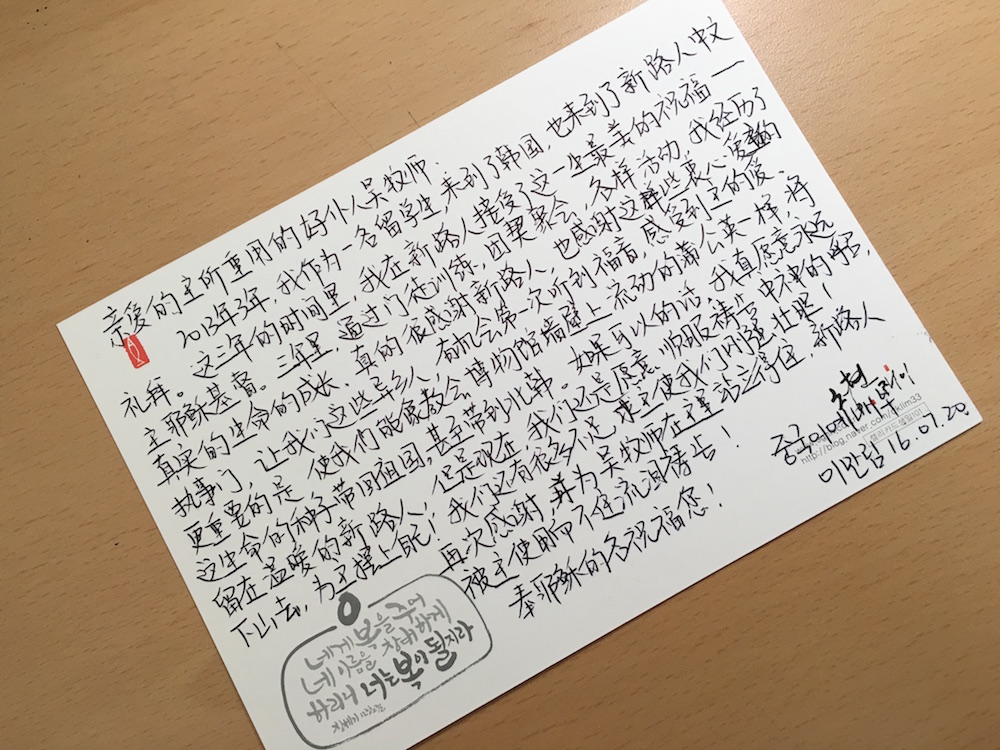 亲爱的主所重用的好仆人吴牧师.
2013年3年,我作为一名留学生,来到了韩国,也来到了新路人中文
礼拜。这三年的时间里,我在新路人接受了这一生最美的祝福——
主耶稣基督。三年里,通过门徒训练,团契聚会,各样活动,我经历了
真实的生命的成长,真的很感谢新路人,也感谢这些衷心爱主的
执事们,让我们这些异乡人,有机会第一次听到福音,感受到主的爱.
更重要的是,使我们能像教会博物馆墙壁上流动的蒲公英一样,将
这生命的种子带回祖国,甚至带到北韩。如果可以的话,我真愿意永远
留在温暖的新路人,但是现在,我们还是愿意,顺服祷告中神的
下山去,为主摆上自己!我们还有很多不足,求主使我们刚强壮胆!
再次感谢,并为吴牧师在主里站立得住,新路人
被主使用而不住祷告!
奉耶稣的名祝福您!
http://blog.naver.com/
16.01.20
네게 복을 주어
네 이름을 창대하게
하리니 너는 복이 될지라